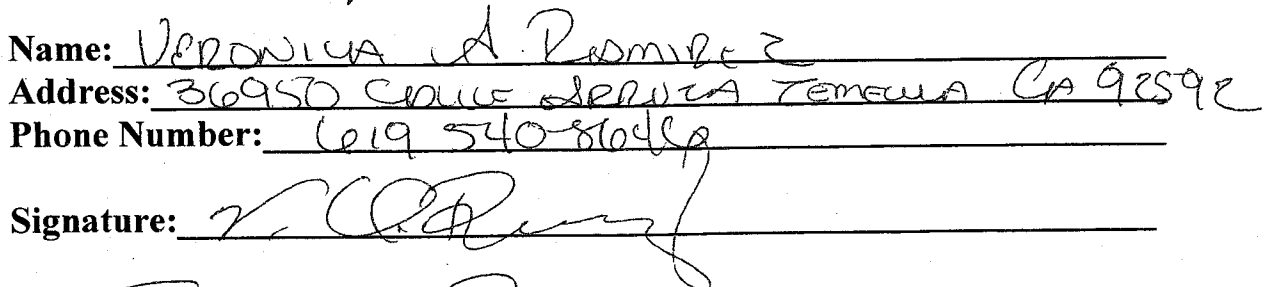 Name: VERONICA A. RAMIREZ
Address: 36950 CALLE ARRUZA TEMECULA CA 92592
Phone Number: 619 540-8646
Signature: